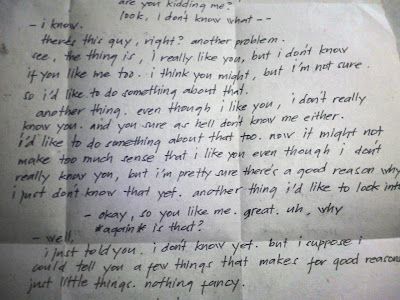 are you kidding me?
look, i don't know what --
- i know.
there's this guy, right? another problem.
see, the thing is, i really like you, but i don't know
if you like me too. i think you might, but i'm not sure.
so i'd like to do something about that.
another thing. even though i like you, i don't really
know you. and you sure as hell don't know me either.
i'd like to do something about that too. now it might not
make too much sense that i like you even though i don't
really know you, but i'm pretty sure there's a good reason why
i just don't know that yet. another thing i'd like to look into
- okay, so you like me. great. uh, why
*again* is that?
- well.
i just told you. i don't know yet. but i suppose i
could tell you a few things that makes for good reasons
just little things. nothing fancy.